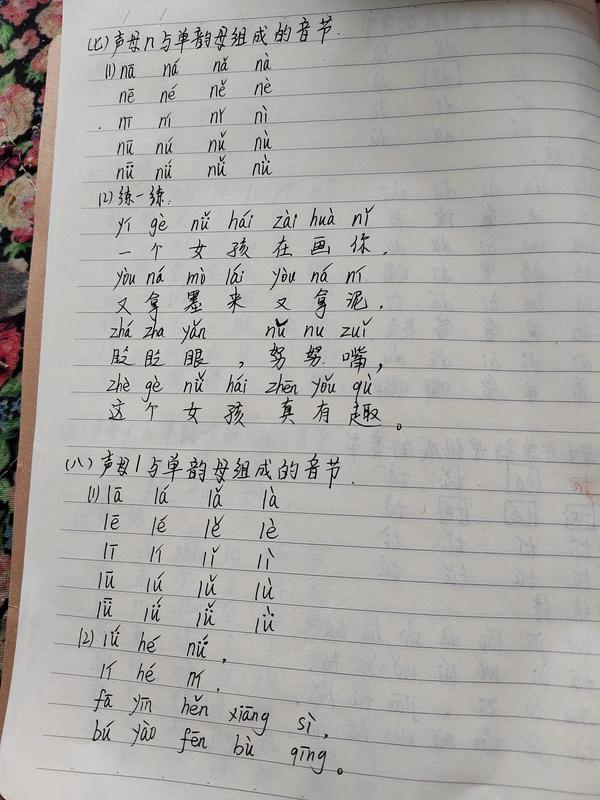 (七)声母n与单韵母组成的音节.
(1) nā ná nǎ nà
nē né ně nè
nī ní nǐ nì
nū nú nǔ nù
nǖ nǘ nǚ nǜ
(2) 练一练:
yí gè nǚ hái zài huà nǐ
一个女孩在画你,
yòu ná mò lái yòu ná ní
又拿墨来又拿泥,
zhá zha yǎn nǔ nu zuǐ
眨眨眼,努努嘴,
zhè gè nǚ hái zhēn yǒu qù
这个女孩真有趣。
(八)声母l与单韵母组成的音节.
(1) lā lá lǎ là
lē lé lě lè
lī lí lǐ lì
lū lú lǔ lù
lǖ lǘ lǚ lǜ
(2) lǘ hé nǘ,
lí hé ní,
fā yīn hěn xiāng sì,
bú yào fēn bù qīng。